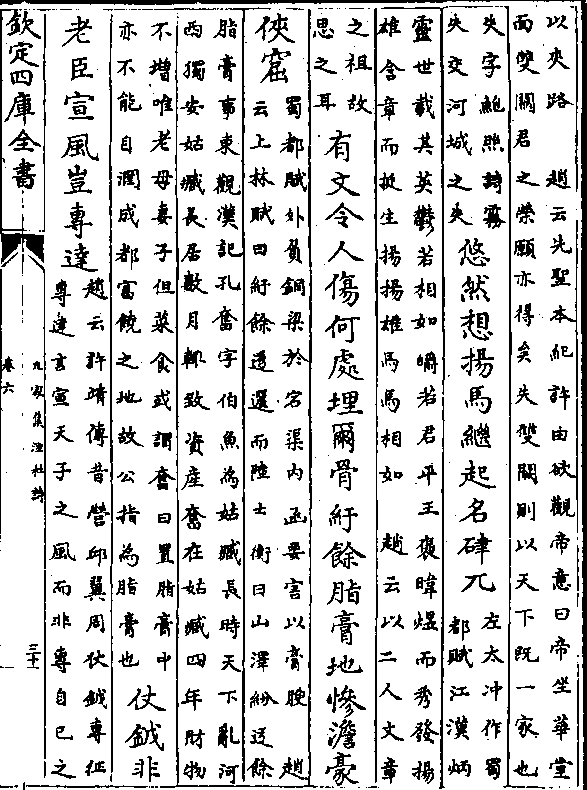 以夾路　趙云先聖本紀許由欲觀帝意曰帝坐華堂
面雙闕君之榮願亦得矣夫雙闕則以天下既一家也
夾字鮑照詩霧
夾交河城之夾
悠然想揚馬繼起名硉兀
左太冲作蜀
都賦江漢炳
靈世載其英鬱若相如皭若君平王襃暐煜而秀發揚
雄含章而挺生揚揚雄馬馬相如　趙云以二人文章
之祖故
思之耳
有文令人傷何處埋爾骨紆餘脂膏地慘澹豪
俠窟
蜀都賦外負銅梁於宕渠内函要害以膏腴　趙
云上林賦曰紆餘逶迤而陸士衡曰山澤紛迂餘
脂膏事東觀漢記孔奮字伯魚為姑臧長時天下亂河
西獨安姑臧長居數月輙致資產奮在姑臧四年財物
不增唯老母妻子但菜食或謂奮曰置脂膏中
亦不能自潤成都富饒之地故公指為脂膏也
仗鉞非
老臣宣風豈專達
趙云許靖傳昔營邱翼周仗鉞專征
專達言宣天子之風而非專自已之
欽定四庫全書
九家集注杜詩
卷六
三十